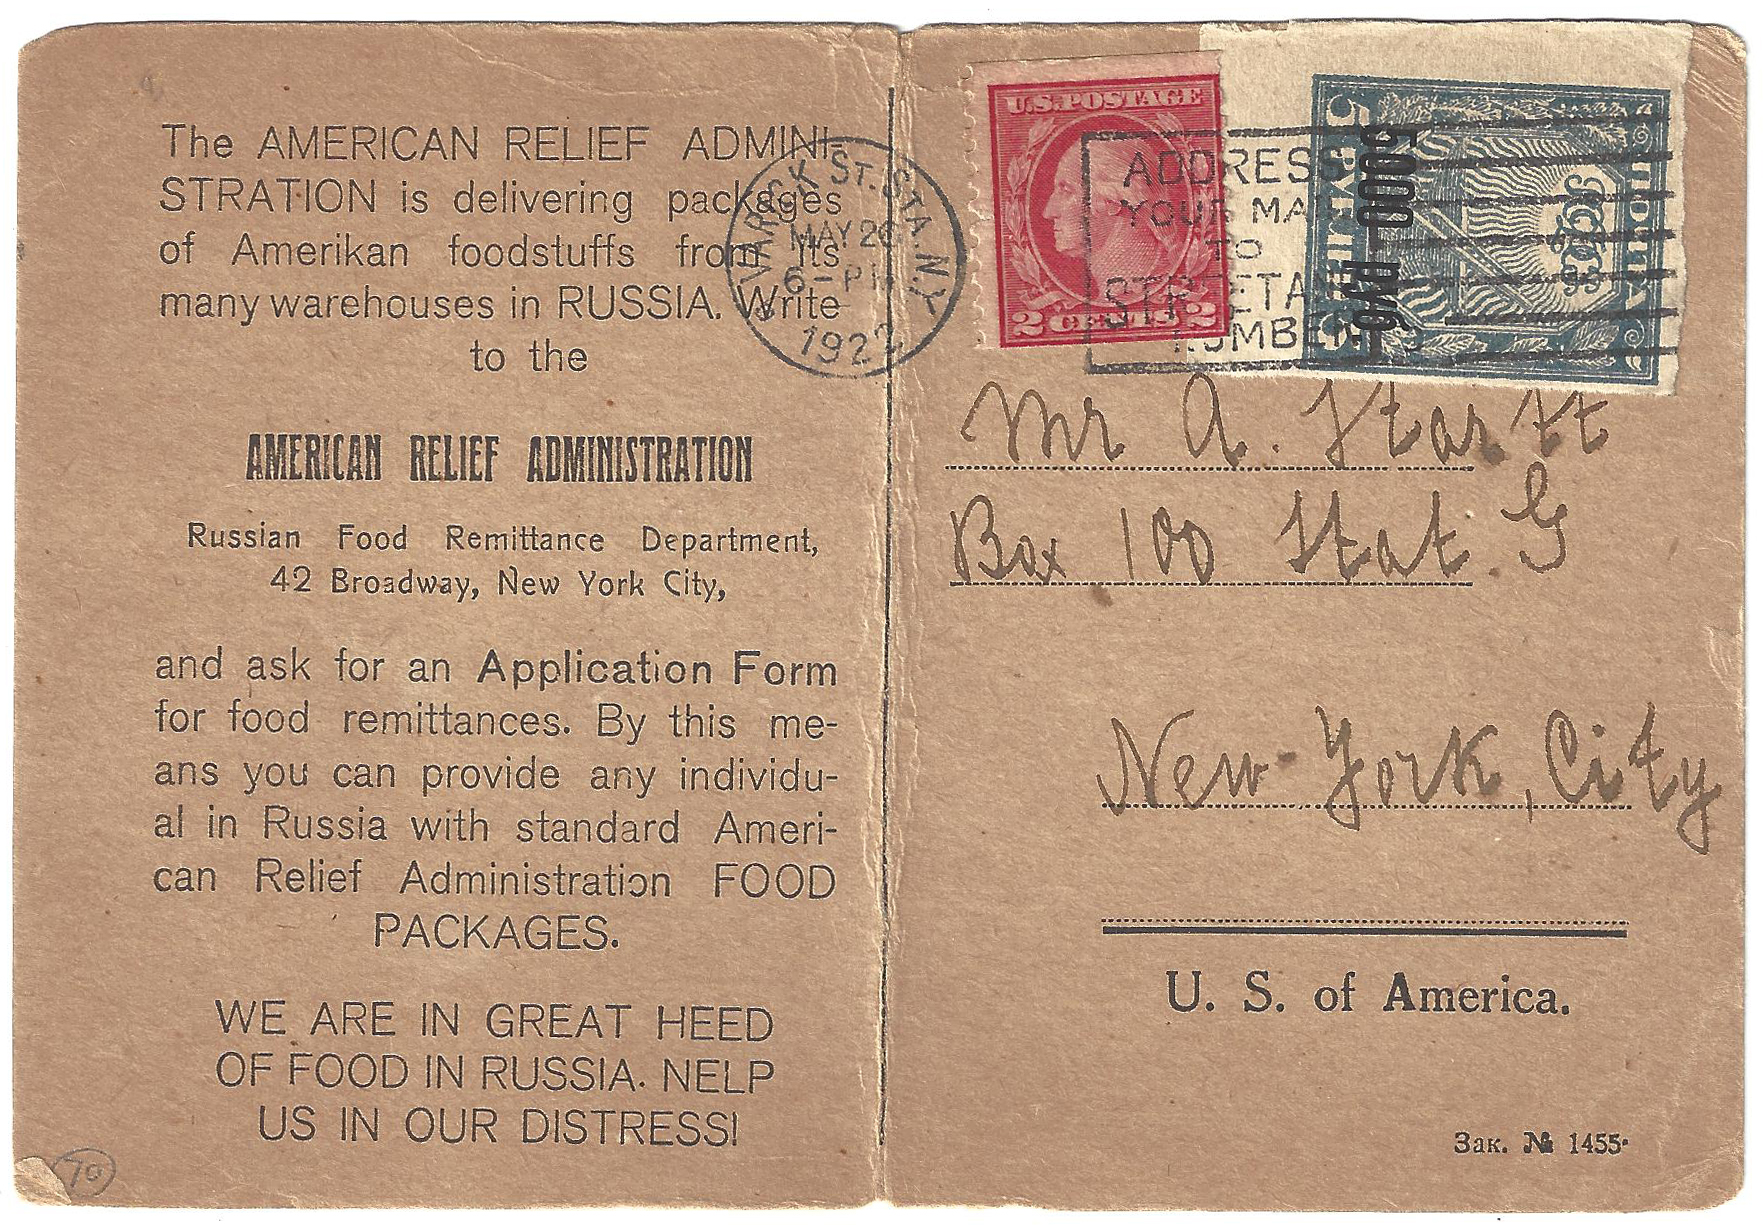 The AMERICAN RELIEF ADMINI-
STRATION is delivering packages
of Amerikan foodstuffs from its
many warehouses in RUSSIA. Write
to the
AMERICAN RELIEF ADMINISTRATION
Russian Food Remittance Department,
42 Broadway, New York City,
and ask for an Application Form
for food remittances. By this me-
ans you can provide any individu-
al in Russia with standard Ameri-
can Relief Administration FOOD
PACKAGES.
WE ARE IN GREAT HEED
OF FOOD IN RUSSIA. NELP
US IN OUR DISTRESS!
70
VARICK ST. STA. N.Y.
MAY 26
6-PM
1922
U.S. POSTAGE
2 CENTS 2
ADDRESS
YOUR MA
TO
STREETA
NUMBER
5000 руб.
5 РУБЛЕЙ 5
ПОЧТА
РСФСР
Mr A. Startt
Box 100 Stat. G
New-York, City
U. S. of America.
Зак. № 1455.